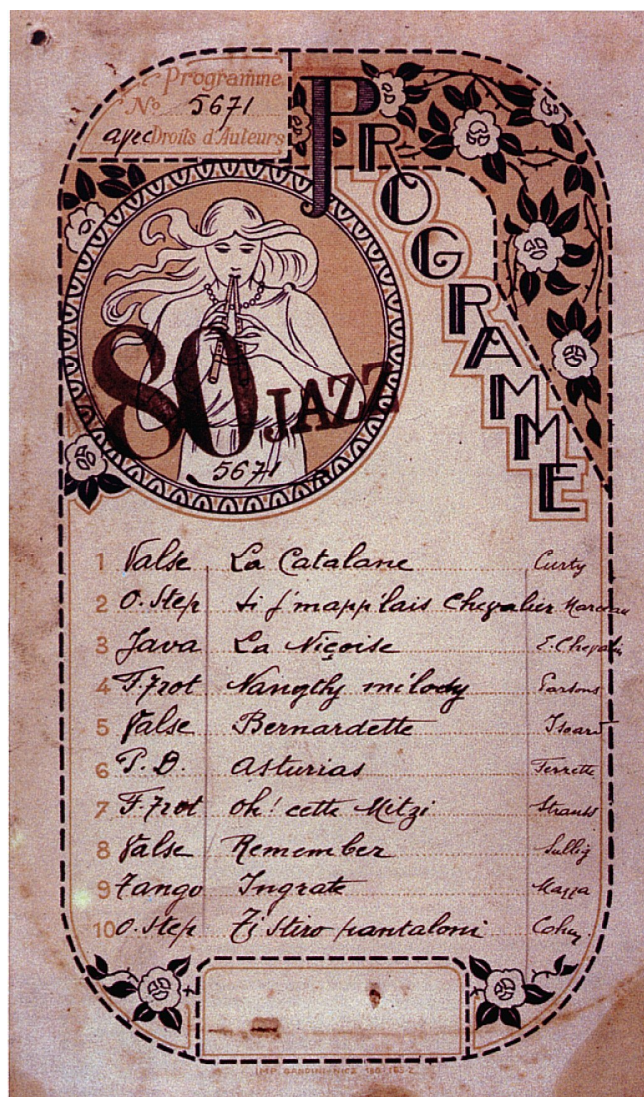 Programme
No 5671
avec Droits d'Auteurs
PROGRAMME
80 JAZZ
5671
1 Valse La Catalane Curty
2 O. Step Si j'mapp'lais Chevalier
3 Java La Niçoise
4 F. Trot melody Parsons
5 Valse Bernardette Isoard
6 P. D. Asturias Ferrette
7 F. Trot Oh! cette Mitzi Strauss
8 Valse Remember
9 Tango Ingrate Mazza
10 O. Step Ti Stiro pantaloni
IMP. GANDINI-NICE